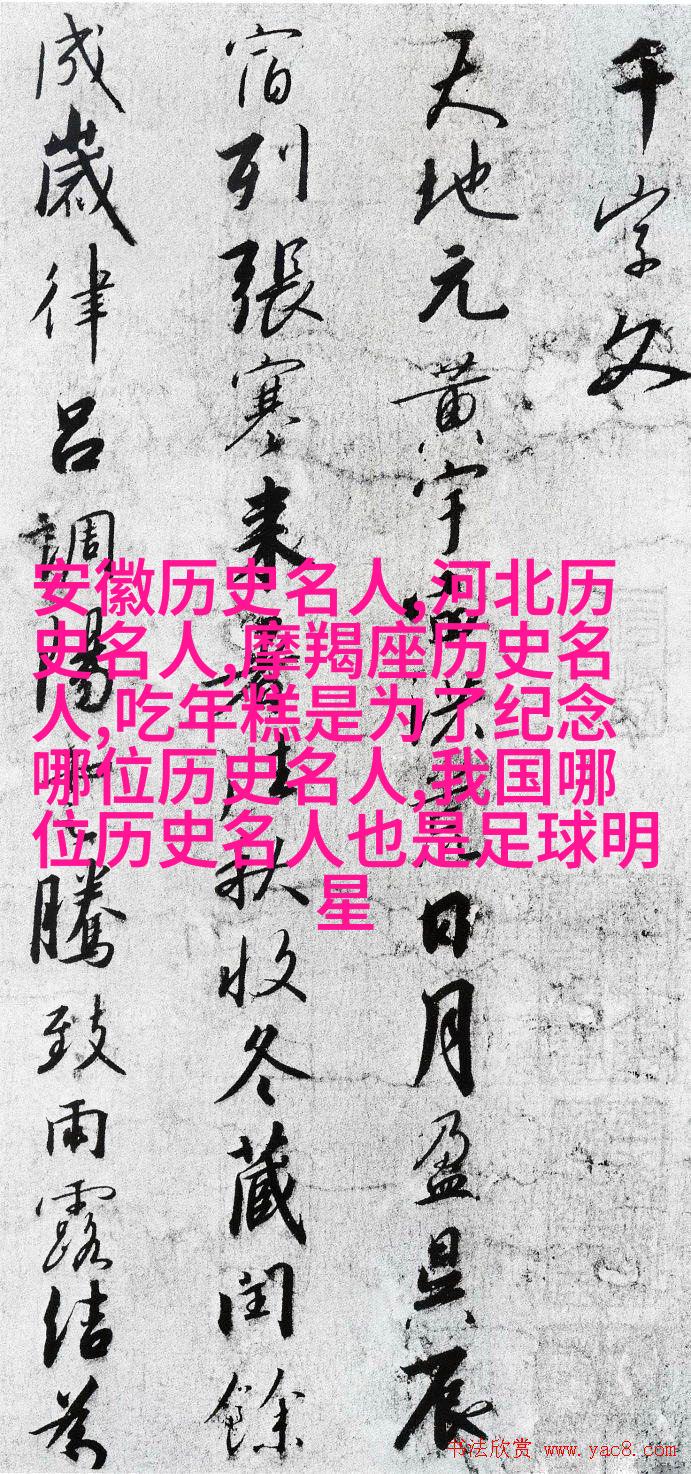 千字文
天地元黄宇宙洪荒日月盈昃辰
宿列張寒来暑往秋收冬蔵閏餘
成歲律呂調陽雲騰致雨露結為
安徽历史名人,河北历
史名人,摩羯座历史名
人,吃年糕是为了纪念
哪位历史名人,我国哪
位历史名人也是足球明
星
书法欣赏 www.yac8.com